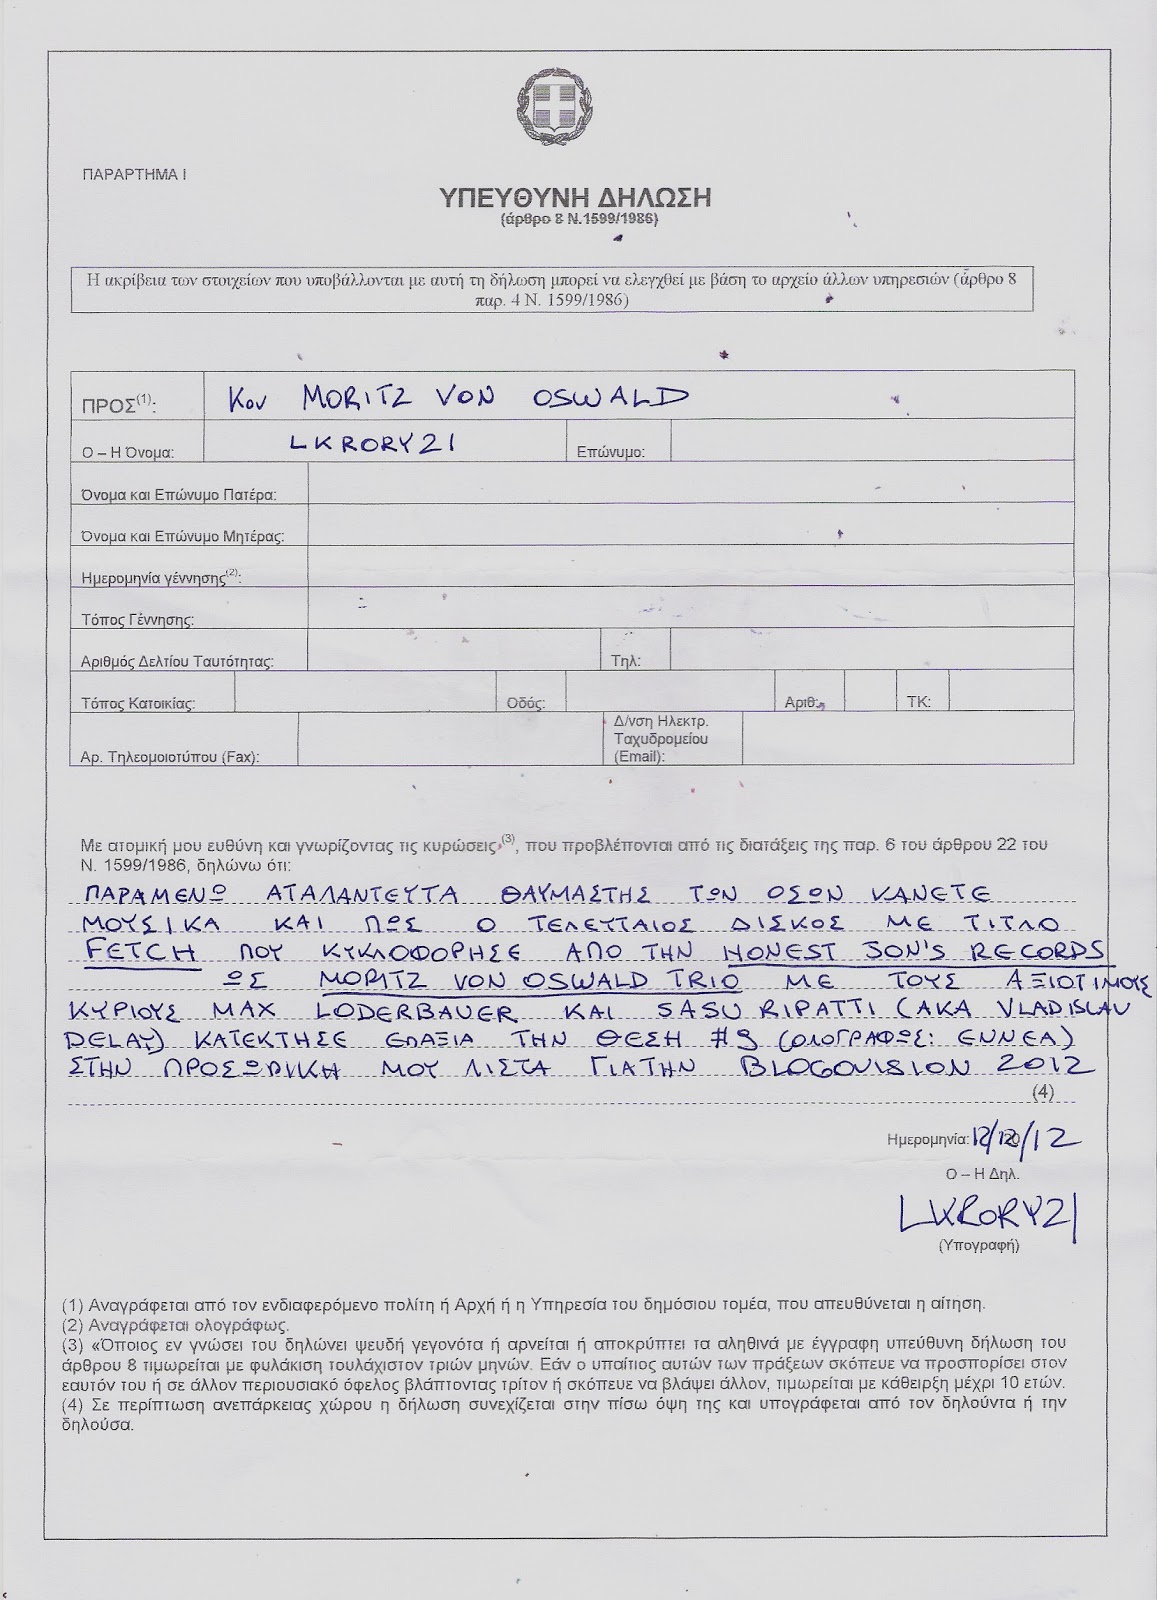 ΠΑΡΑΡΤΗΜΑ Ι
ΥΠΕΥΘΥΝΗ ΔΗΛΩΣΗ
(άρθρο 8 Ν.1599/1986)
Η ακρίβεια των στοιχείων που υποβάλλονται με αυτή τη δήλωση μπορεί να ελεγχθεί με βάση το αρχείο άλλων υπηρεσιών (άρθρο 8
παρ. 4 Ν. 1599/1986)
ΠΡΟΣ(1): Κον MORITZ VON OSWALD
Ο – Η Όνομα: LKRORY21 Επώνυμο:
Όνομα και Επώνυμο Πατέρα:
Όνομα και Επώνυμο Μητέρας:
Ημερομηνία γέννησης(2):
Τόπος Γέννησης:
Αριθμός Δελτίου Ταυτότητας: Τηλ:
Τόπος Κατοικίας: Οδός: Αριθ: ΤΚ:
Αρ. Τηλεομοιοτύπου (Fax): Δ/νση Ηλεκτρ.
Ταχυδρομείου
(Email):
Με ατομική μου ευθύνη και γνωρίζοντας τις κυρώσεις (3), που προβλέπονται από τις διατάξεις της παρ. 6 του άρθρου 22 του
Ν. 1599/1986, δηλώνω ότι:
ΠΑΡΑΜΕΝΩ ΑΤΑΛΑΝΤΕΥΤΑ ΘΑΥΜΑΣΤΗΣ ΤΩΝ ΟΣΩΝ ΚΑΝΕΤΕ
ΜΟΥΣΙΚΑ ΚΑΙ ΠΩΣ Ο ΤΕΛΕΥΤΑΙΟΣ ΔΙΣΚΟΣ ΜΕ ΤΙΤΛΟ
FETCH ΠΟΥ ΚΥΚΛΟΦΟΡΗΣΕ ΑΠΟ ΤΗΝ HONEST JON'S RECORDS
ΩΣ MORITZ VON OSWALD TRIO ΜΕ ΤΟΥΣ ΑΞΙΟΤΙΜΟΥΣ
ΚΥΡΙΟΥΣ MAX LODERBAUER ΚΑΙ SASU RIPATTI (AKA VLADISLAV
DELAY) ΚΑΤΕΚΤΗΣΕ ΕΠΑΞΙΑ ΤΗΝ ΘΕΣΗ #9 (ΟΛΟΓΡΑΦΩΣ: ΕΝΝΕΑ)
ΣΤΗΝ ΠΡΟΣΩΠΙΚΗ ΜΟΥ ΛΙΣΤΑ ΓΙΑ ΤΗΝ BLOGOVISION 2012
(4)
Ημερομηνία: 12/12/12
Ο – Η Δηλ.
LKRORY21
(Υπογραφή)
(1) Αναγράφεται από τον ενδιαφερόμενο πολίτη ή Αρχή ή η Υπηρεσία του δημόσιου τομέα, που απευθύνεται η αίτηση.
(2) Αναγράφεται ολογράφως.
(3) «Όποιος εν γνώσει του δηλώνει ψευδή γεγονότα ή αρνείται ή αποκρύπτει τα αληθινά με έγγραφη υπεύθυνη δήλωση του
άρθρου 8 τιμωρείται με φυλάκιση τουλάχιστον τριών μηνών. Εάν ο υπαίτιος αυτών των πράξεων σκόπευε να προσπορίσει στον
εαυτόν του ή σε άλλον περιουσιακό όφελος βλάπτοντας τρίτον ή σκόπευε να βλάψει άλλον, τιμωρείται με κάθειρξη μέχρι 10 ετών.
(4) Σε περίπτωση ανεπάρκειας χώρου η δήλωση συνεχίζεται στην πίσω όψη της και υπογράφεται από τον δηλούντα ή την
δηλούσα.